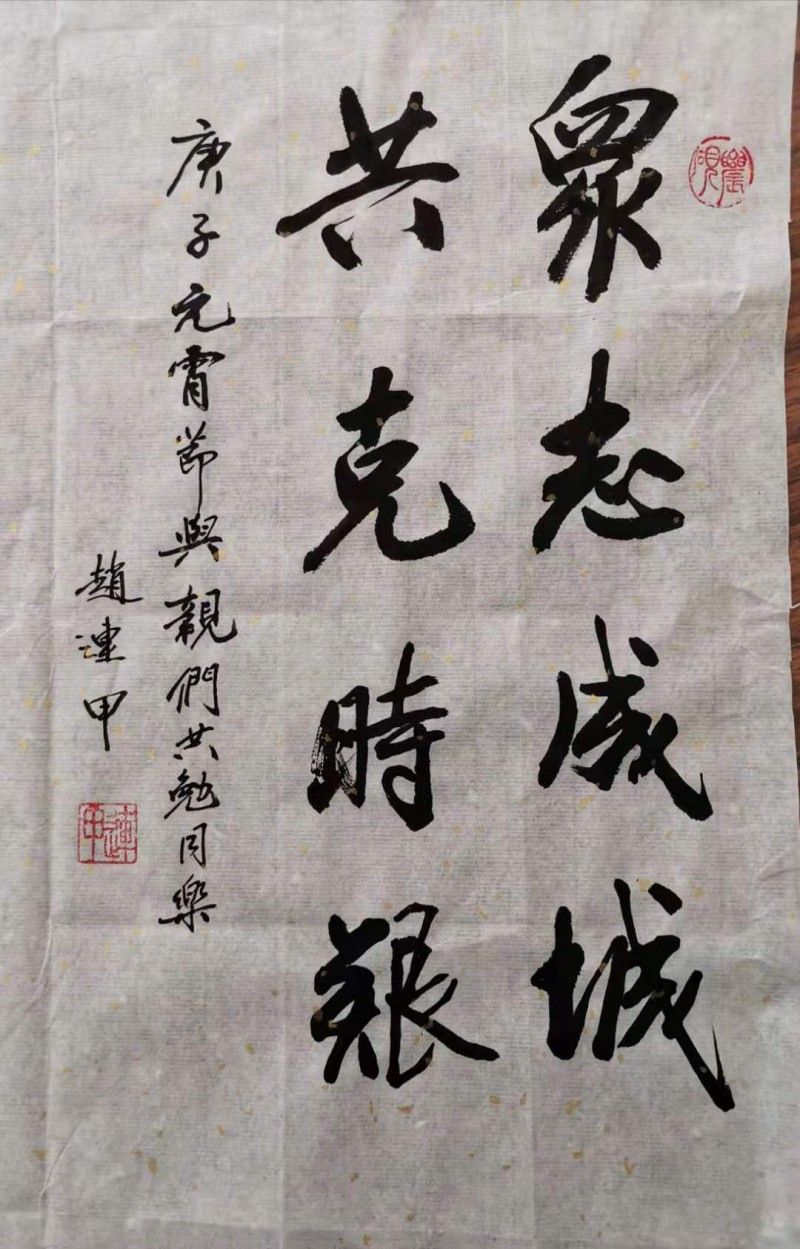 眾志成城
共克時艱
庚子元宵節與親們共勉同樂
趙連甲
連甲